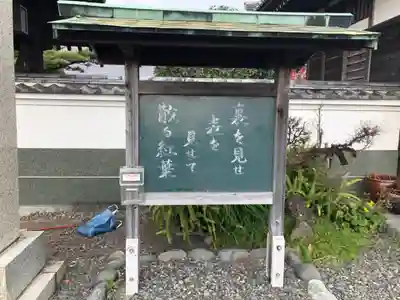 裏を見せ
表を
見せて
散る紅葉